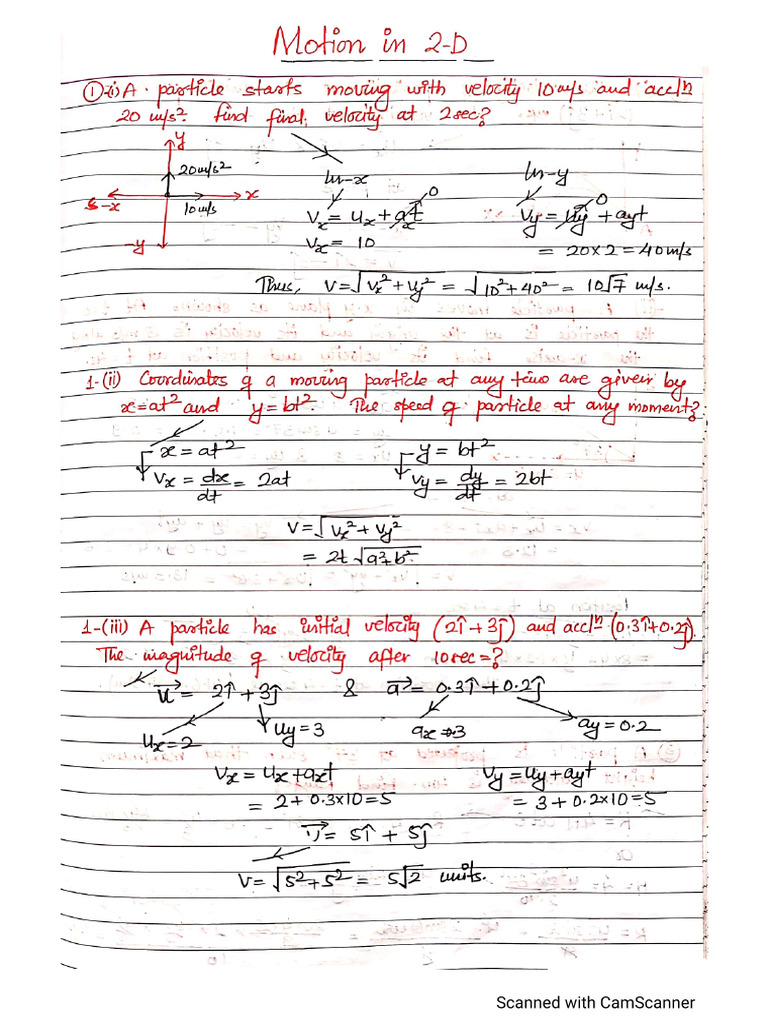 Motion in 2-D
①-i) A particle starts moving with velocity 10 m/s and accln
20 m/s². find final velocity at 2sec?
y
20 m/s²
-x
x
10 m/s
-y
In-x
In-y
0
0
Vx = Ux + axt
Vy = Uy + ayt
Vx = 10
= 20×2 = 40 m/s
Thus, V = √Vx² + Vy² = √10² + 40² = 10√7 m/s.
1-(ii) Coordinates of a moving particle at any time are given by
x = at² and y = bt². The speed of particle at any moment?
x = at²
y = bt²
Vx = dx/dt = 2at
Vy = dy/dt = 2bt
V = √Vx² + Vy²
= 2t √a²+b².
1-(iii) A particle has initial velocity (2î + 3ĵ) and accln (0.3î+0.2ĵ).
The magnitude of velocity after 10sec=?
u⃗ = 2î + 3ĵ & a⃗ = 0.3î + 0.2ĵ
Ux = 2
Uy = 3
ay = 0.2
Vx = Ux + axt
Vy = Uy + ayt
= 2 + 0.3×10 = 5
= 3 + 0.2×10 = 5
v⃗ = 5î + 5ĵ
V = √5² + 5² = 5√2 units.
Scanned with CamScanner